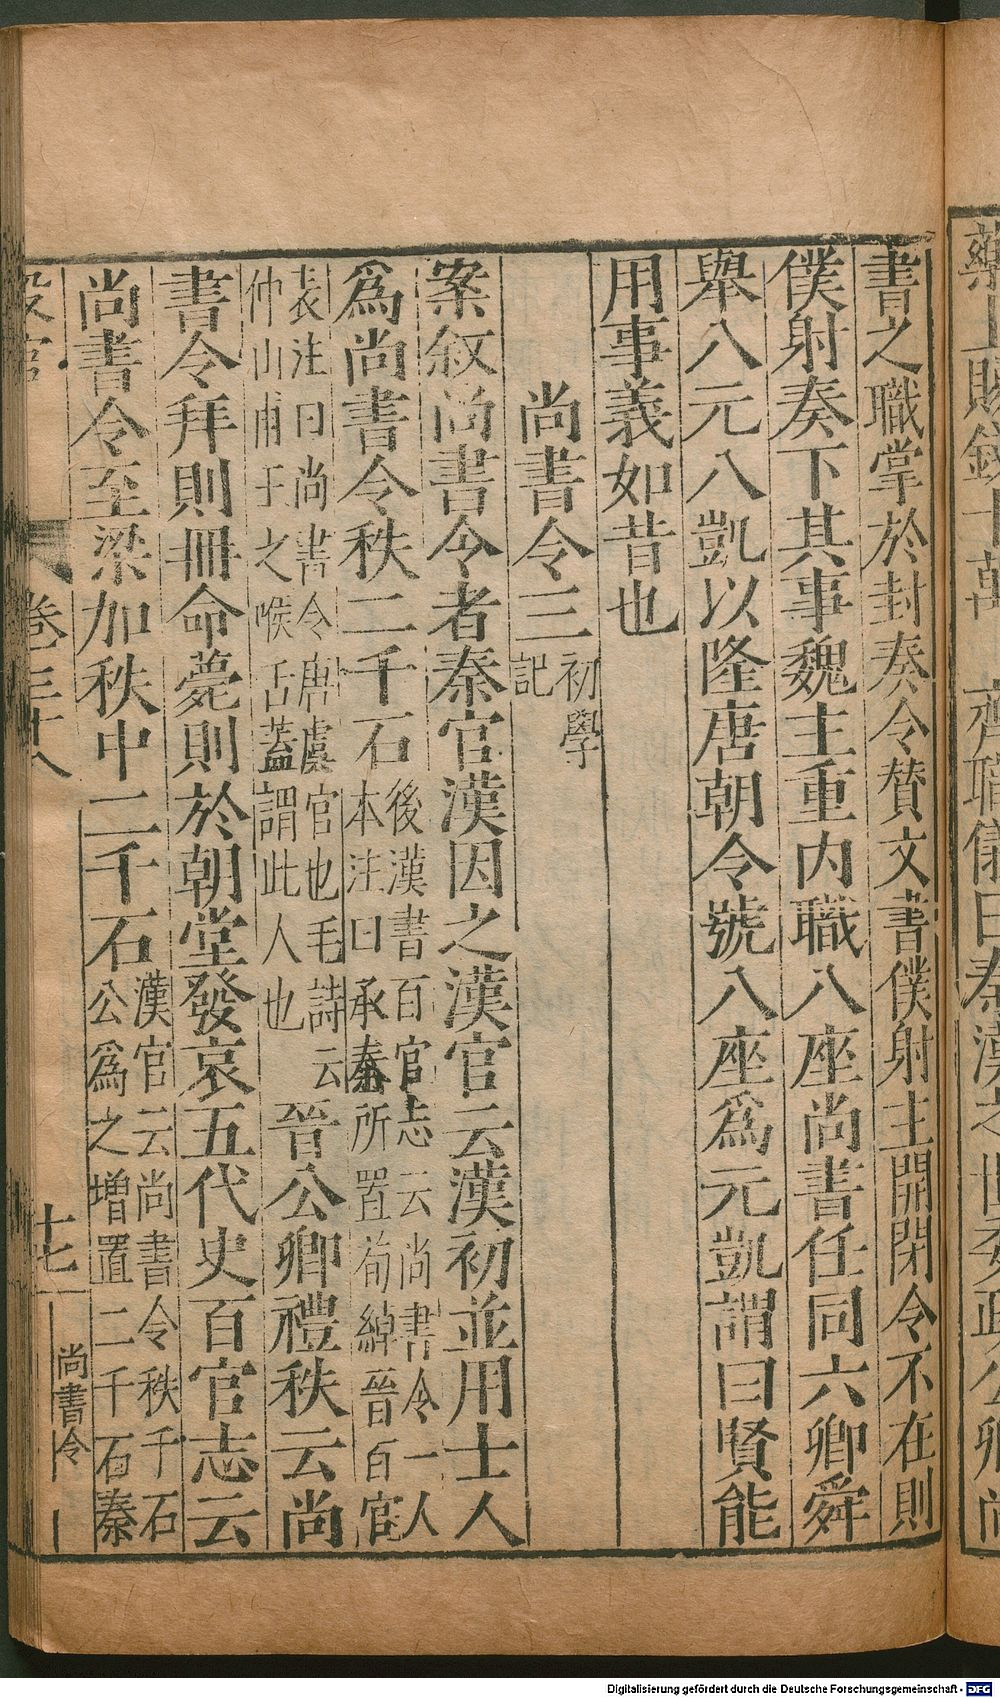 書之職掌於封奏令贊文書僕射主開閉令不在則
僕射奏下其事魏主重內職八座尚書任同六卿舜
舉八元八凱以隆唐朝令號八座爲元凱謂曰賢能
用事義如昔也
尚書令三初學
記
案叙尚書令者秦官漢因之漢官云漢初並用士人
爲尚書令秩二千石後漢書百官志云尚書令一人
本注曰承秦所置荀綽晉百官
表注曰尚書令唐虞官也毛詩云
仲山甫王之喉舌蓋謂此人也晉公卿禮秩云尚
書令拜則冊命薨則於朝堂發哀五代史百官志云
尚書令至梁加秩中二千石漢官云尚書令秩千石
公爲之增置二千石秦
設官 卷三十八 十七 尚書令
齊職儀曰秦漢之世委政公卿尚
Digitalisierung gefördert durch die Deutsche Forschungsgemeinschaft - DFG